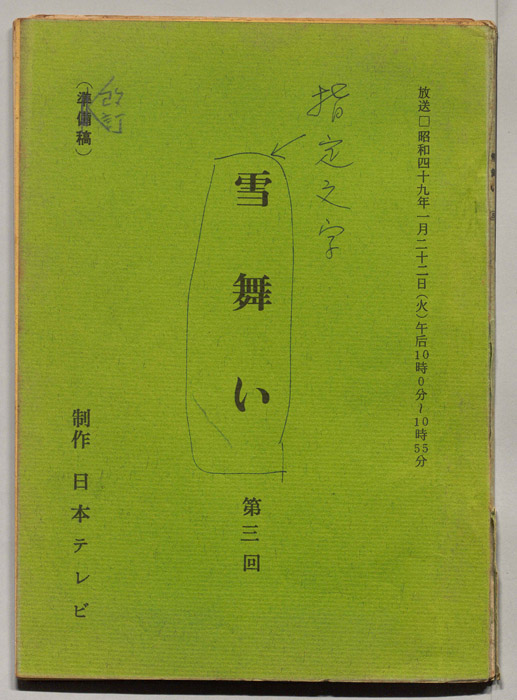 放送□昭和四十九年一月二十二日（火）午后10時0分～10時55分
指定文字
雪舞い
第三回
（準備稿）
制作 日本テレビ